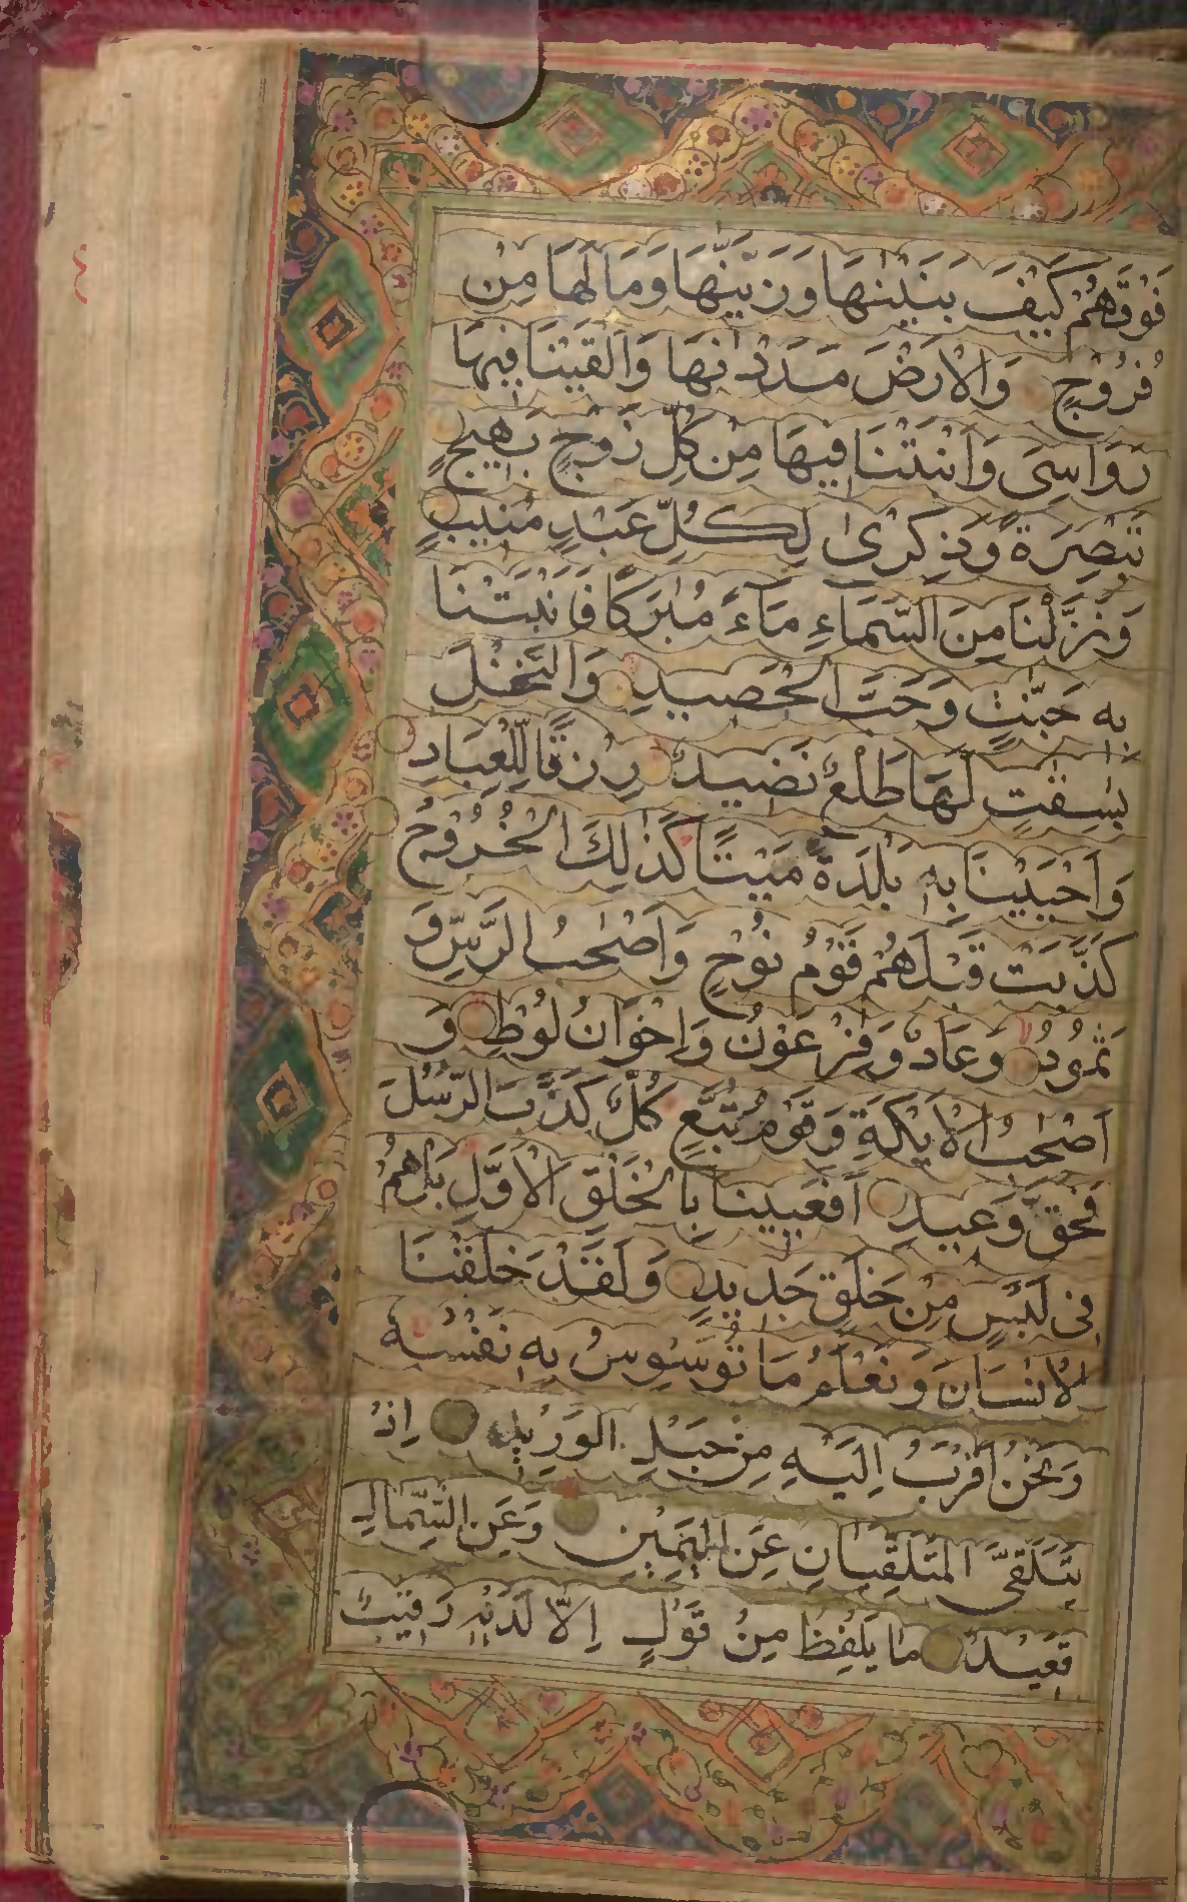 فَوْقَهُمْ كَيْفَ بَنَيْنٰهَا وَزَيَّنّٰهَا وَمَا لَهَا مِنْ
فُرُوْجٍ وَالْاَرْضَ مَدَدْنٰهَا وَاَلْقَيْنَا فِيهَا
رَوَاسِىَ وَاَنْبَتْنَا فِيهَا مِنْ كُلِّ زَوْجٍ بَهِيْجٍ
تَبْصِرَةً وَذِكْرٰى لِكُلِّ عَبْدٍ مُنِيبٍ
وَنَزَّلْنَا مِنَ السَّمَآءِ مَآءً مُبٰرَكًا فَاَنْبَتْنَا
بِهٖ جَنّٰتٍ وَحَبَّ الْحَصِيدِ وَالنَّخْلَ
بٰسِقٰتٍ لَهَا طَلْعٌ نَضِيدٌ رِزْقًا لِلْعِبَادِ
وَاَحْيَيْنَا بِهٖ بَلْدَةً مَيْتًا كَذٰلِكَ الْخُرُوْجُ
كَذَّبَتْ قَبْلَهُمْ قَوْمُ نُوْحٍ وَاَصْحٰبُ الرَّسِّ وَ
ثَمُوْدُ وَعَادٌ وَفِرْعَوْنُ وَاِخْوَانُ لُوْطٍ وَ
اَصْحٰبُ الْاَيْكَةِ وَقَوْمُ تُبَّعٍ كُلٌّ كَذَّبَ الرُّسُلَ
فَحَقَّ وَعِيدِ اَفَعَيِينَا بِالْخَلْقِ الْاَوَّلِ بَلْ هُمْ
فِى لَبْسٍ مِنْ خَلْقٍ جَدِيدٍ وَلَقَدْ خَلَقْنَا
الْاِنْسَانَ وَنَعْلَمُ مَا تُوَسْوِسُ بِهٖ نَفْسُهُ
وَنَحْنُ اَقْرَبُ اِلَيْهِ مِنْ حَبْلِ الْوَرِيْدِ اِذْ
يَتَلَقَّى الْمُتَلَقِّيَانِ عَنِ الْيَمِيْنِ وَعَنِ الشِّمَالِ
قَعِيْدٌ مَا يَلْفِظُ مِنْ قَوْلٍ اِلَّا لَدَيْهِ رَقِيْبٌ